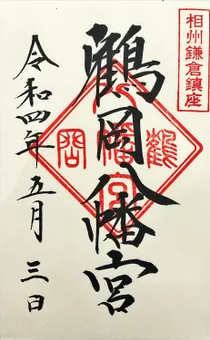 相州鎌倉鎮座
鶴岡八幡宮
鶴岡
八幡宮
令和四年五月三日